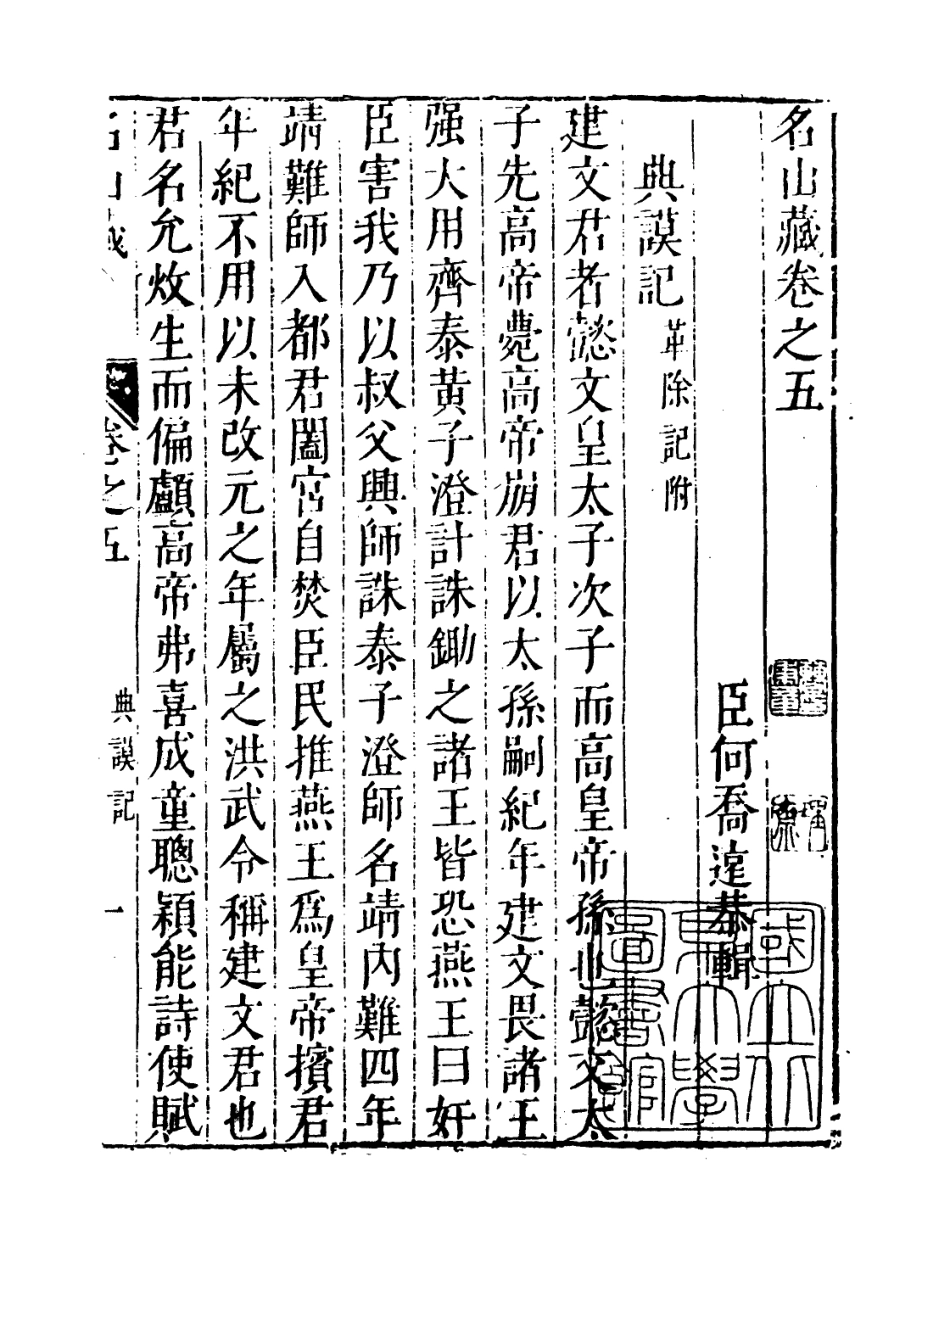 名山藏卷之五
臣何喬遠恭輯
典謨記 革除記附
建文君者懿文皇太子次子而高皇帝孫也懿文太
子先高帝薨高帝崩君以太孫嗣紀年建文畏諸王
强大用齊泰黄子澄計誅鋤之諸王皆恐燕王曰奸
臣害我乃以叔父興師誅泰子澄師名靖内難四年
靖難師入都君闔宮自焚臣民推燕王爲皇帝擯君
年紀不用以未改元之年屬之洪武令稱建文君也
君名允炆生而偏顱高帝弗喜成童聰穎能詩使賦
名山藏 卷之五 典謨記 一
國立北平大學圖書館